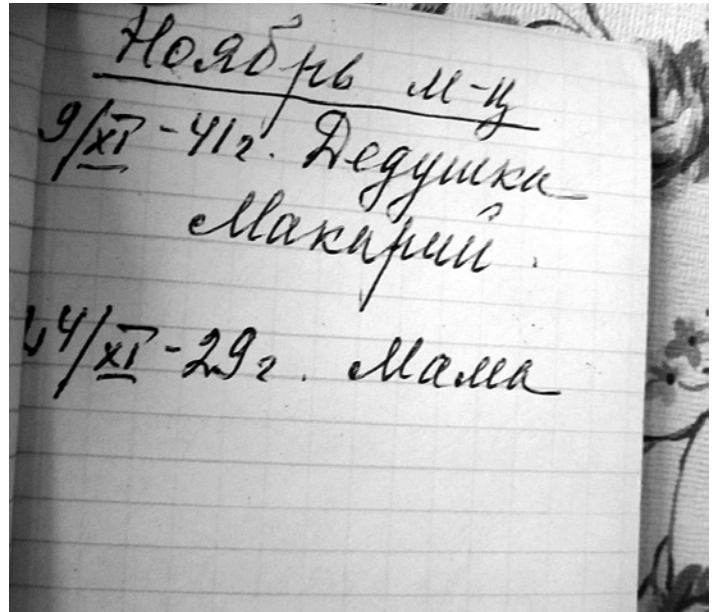 Ноябрь м-ц
9/XI - 41г. Дедушка
Макарий.
24/XI - 29г. Мама